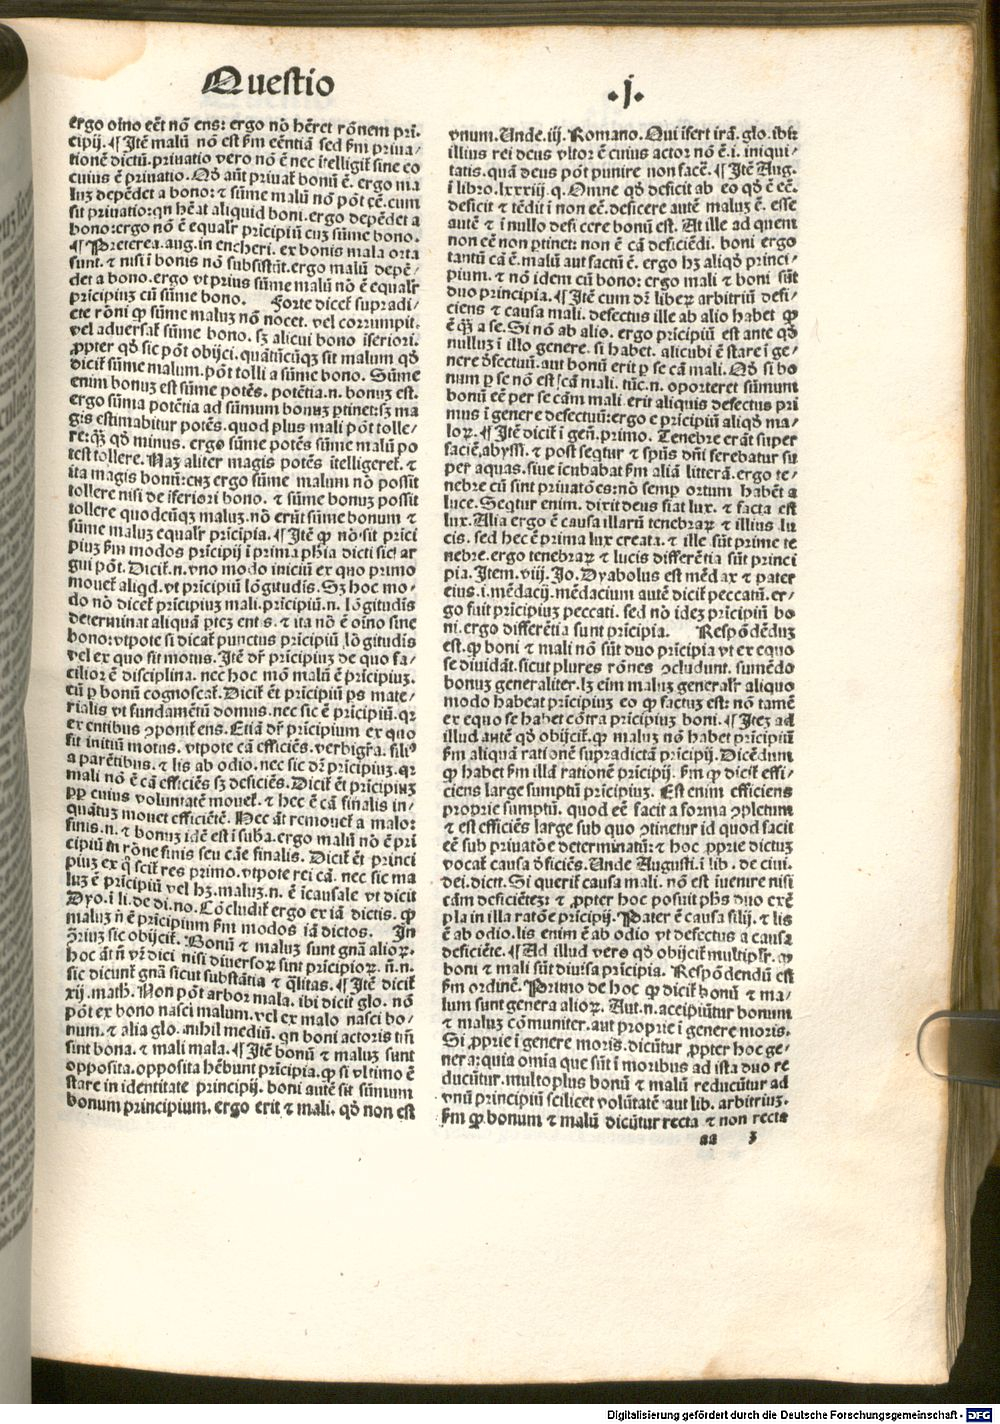 Questio
.j.
ergo oīno eēt nō ens: ergo nō hēret rōnem pri-
cipij. ¶ Itē malū nō est ẜm eēntiā sed ẜm priua/
tionē dictū. priuatio vero nō ē nec ītelligit̄ sine eo
cuius ē priuatio. Qḋ aūt priuat̄ bonū ē. ergo ma
luꝫ depēdet a bono: ⁊ sūme malū nō pōt eē. cum
sit priuatio: qn̄ hēat aliquid boni. ergo depēdet a
bono: ergo nō ē equalr̄ pricipiū cuꝫ sūme bono.
¶ Preterea. aug. in encheri. ex bonis mala orta
sunt. ⁊ nisi ī bonis nō subsistūt. ergo malū depē/
det a bono. ergo vt prius sūme malū nō ē equalr̄
pricipiuꝫ cū sūme bono. Forte dicet̄ supradi/
cte rōni ꝙ sūme maluꝫ nō nocet. vel corrumpit.
vel aduersat̄ sūme bono. sꝫ alicui bono īferiori.
ꝓpter qḋ sic pōt obijci. quātūcūqꝫ sit malum qḋ
dicit̄ sūme malum. pōt tolli a sūme bono. Sūme
enim bonuꝫ est sūme potēs. potētia. n. bonuꝫ est.
ergo sūma potētia ad sūmum bonuꝫ ꝑtinet: sꝫ ma
gis estimabitur potēs. quod plus mali pōt tolle/
re: qꝫ qḋ minus. ergo sūme potēs sūme malū po
test tollere. Naꝫ aliter magis potēs ītelligeret̄. ⁊
ita magis bonū: cuꝫ ergo sūme malum nō possit
tollere nisi de īferiori bono. ⁊ sūme bonuꝫ possit
tollere quodcūqꝫ maluꝫ. nō erūt sūme bonum ⁊
sūme maluꝫ equalr̄ pricipia. ¶ Itē ꝙ nō sit prici
piuꝫ ẜm modos pricipij ī prima pḣia dicti sic ar
gui pōt. Dicit̄. n. vno modo iniciū ex quo primo
mouet̄ aliqd. vt pricipiū lōgitudis. Sꝫ hoc mo-
do nō dicet̄ pricipiuꝫ mali. pricipiū. n. lōgitudīs
determinat aliquā ꝑtez entis. ⁊ ita nō ē oīno sine
bono: vtpote si dicat̄ punctus pricipiū lōgitudis
vel ex quo sit motus. Itē dr̄ pricipiuꝫ de quo fa/
cilior ē disciplina. nec hoc mō malū ē pricipiuꝫ.
cū ꝑ bonū cognoscat̄. Dicit̄ ēt pricipiū ps mate/
rialis vt fundamētū domus. nec sic ē pricipiū. qꝛ
ex entibus ꝯponit̄ ens. Etiā dr̄ pricipium ex quo
fit initiū motus. vtpote cā efficiēs. verbigr̄a. filiꝰ
a parētibus. ⁊ lis ab odio. nec sic dr̄ pricipiuꝫ. qꝛ
mali nō ē cā efficiēs sꝫ deficiēs. Dicit̄ ēt pricipiuꝫ
ꝓp cuius voluntatē mouet̄. ⁊ hec ē cā finalis in/
quātuꝫ mouet efficiētē. Hec āt remouet̄ a malo:
finis. n. ⁊ bonuꝫ idē est ī suba. ergo malū nō ē pri
cipiū in rōne finis seu cāe finalis. Dicit̄ ēt princi
piuꝫ ex q̇ scit̄ res primo. vtpote rei cā. nec sic ma
luꝫ ē pricipiū vel hꝫ. maluꝫ. n. ē īcausale vt dicit
Dyo. ī li. de di. no. Cōcludit̄ ergo ex iā dictis. ꝙ
maluꝫ n̄ ē pricipium ẜm modos iā dictos. In
ꝯrius sic obijcit̄. Bonū ⁊ maluꝫ sunt gnā alioꝝ.
hoc āt n̄ vr̄ dici nisi diuersoꝝ sint pricipioꝝ. n̄. n.
sic dicunt̄ gnā sicut substātia ⁊ qlitas. ¶ Itē dicit̄
xij. math. Non pōt arbor mala. ibi dicit glo. nō
pōt ex bono nasci malum. vel ex malo nasci bo/
num. ⁊ alia glo. nihil mediū. qn̄ boni actoris tm̄
sint bona. ⁊ mali mala. ¶ Itē bonū ⁊ maluꝫ sunt
opposita. opposita hēbunt pricipia. ꝙ si vltimo ē
stare in identitate principij. boni autē sit sūmum
bonum principium. ergo erit ⁊ mali. qḋ non est
vnum. Unde. iij. Romano. Qui īfert irā. glo. ibi:
illius rei deus vltor ē cuius actor nō ē. i. iniqui/
tatis. quā deus pōt punire non facē. ¶ Itē Aug.
ī libro. lxxxiij. q. Omne qḋ deficit ab eo qḋ ē eē.
deficit ⁊ tēdit ī non eē. deficere autē maluꝫ ē. esse
autē ⁊ ī nullo deficere bonū est. At ille ad quem
non eē non ꝑtinet: non ē cā deficiēdi. boni ergo
tantū cā ē. malū aut factū ē. ergo hꝫ aliqḋ princi/
pium. ⁊ nō idem cū bono: ergo mali ⁊ boni sūt
duo principia. ¶ Itē cum dꝫ liberꝫ arbitriū defi/
ciens ⁊ causa mali. defectus ille ab alio habet ꝙ
ē q̄ꝫ a se. Si nō ab alio. ergo pricipiū est ante qḋ
nulluꝫ ī illo genere. si habet. alicubi ē stare ī ge/
nere ꝺfectuū. aut bonū erit ꝑ se cā mali. Qḋ si bo
num ꝑ se nō est cā mali. tūc. n. oporteret sūmum
bonū eē per se cām mali. erit aliquis defectus pri
mus ī genere defectuū: ergo e pricipiū aliqḋ ma/
loꝝ. ¶ Itē dicit̄ ī gen̄. primo. Tenebre erāt super
faciē. abyssi. ⁊ post seqtur ⁊ spūs dn̄i ferebatur su
per aquas. siue īcubabat ẜm aliā litterā. ergo te/
nebre cū sint priuatōes: nō semꝑ ortum habēt a
luce. Seqtur enim. dixit deus fiat lux. ⁊ facta est
lux. Alia ergo ē causa illarū tenebraꝝ ⁊ illius lu
cis. sed hec ē prima lux creata. ⁊ ille sūt prime te
nebre. ergo tenebraꝝ ⁊ lucis differētia sūt princi
pia. Item. viij. Jo. Dyabolus est mēdax ⁊ pater
eius. i. mēdacij. mēdacium autē dicit̄ peccatū. er/
go fuit pricipiuꝫ peccati. sed nō ideꝫ pricipiū bo
ni. ergo differētia sunt pricipia. Respōdēduꝫ
est. ꝙ boni ⁊ mali nō sūt duo pricipia vt ex equo
se diuidāt. sicut plures rōnes ꝯcludunt. sumēdo
bonuꝫ generaliter. lꝫ eīm maluꝫ generalr̄ aliquo
modo habeat pricipiuꝫ eo ꝙ factuꝫ est: nō tamē
ex equo se habet cōtra pricipiuꝫ boni. ¶ Iteꝫ ad
illud autē qḋ obijcit̄. ꝙ maluꝫ nō habet pricipiū
ẜm aliquam rationē supradictā pricipij. Dicēdum
ꝙ habet ẜm illā rationē pricipij. ẜm ꝙ dicit̄ effi/
ciens large sumptū pricipiuꝫ. Est enim efficiens
proprie sumptū. quod eē facit a forma ꝯpletum
⁊ est efficiēs large sub quo ꝯtinetur id quod facit
eē sub priuatōe determinatū: ⁊ hoc ꝓprie dictuꝫ
vocat̄ causa ꝺficiēs. Unde Augusti. ī lib. de ciui.
dei. dicit. Si querit̄ causa mali. nō est īuenire nisi
cām deficiētez: ⁊ ꝓpter hoc posuit phs duo exē
pla in illa ratōe pricipij. Pater ē causa filij. ⁊ lis
ē ab odio. lis enim ē ab odio vt defectus a causa
deficiēte. ¶ Ad illud vero qḋ obijcit̄ multiplr̄. ꝙ
boni ⁊ mali sūt diuisa pricipia. Respōdendū est
ẜm ordinē. Primo de hoc ꝙ dicit̄ bonū ⁊ ma/
lum sunt genera alioꝝ. Aut. n. accipiūtur bonum
⁊ maluꝫ cōmuniter. aut proprie ī genere moris.
Si ꝓprie ī genere moris. dicūtur ꝓpter hoc ge/
nera: quia omia que sūt ī moribus ad ista duo re
ducūtur. multoplus bonū ⁊ malū reducūtur ad
vnū principiū scilicet volūtatē aut lib. arbitriuꝫ.
ẜm ꝙ bonum ⁊ malū dicūtur recta ⁊ non recta
aa 3
Digitalisierung gefördert durch die Deutsche Forschungsgemeinschaft - DFG